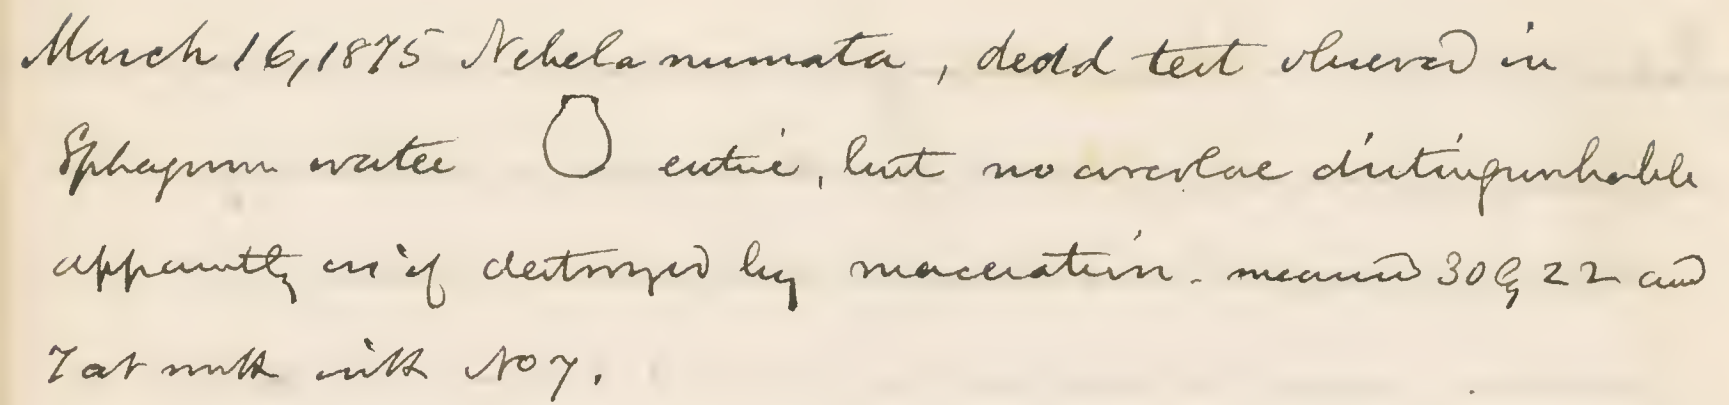 March 16, 1875 Nebela numata, dead test observed in
Sphagnum water entire, but no areolae distinguishable
apparently as if destroyed by maceration. measured 30 by 22 and
7 at mouth with No 7.